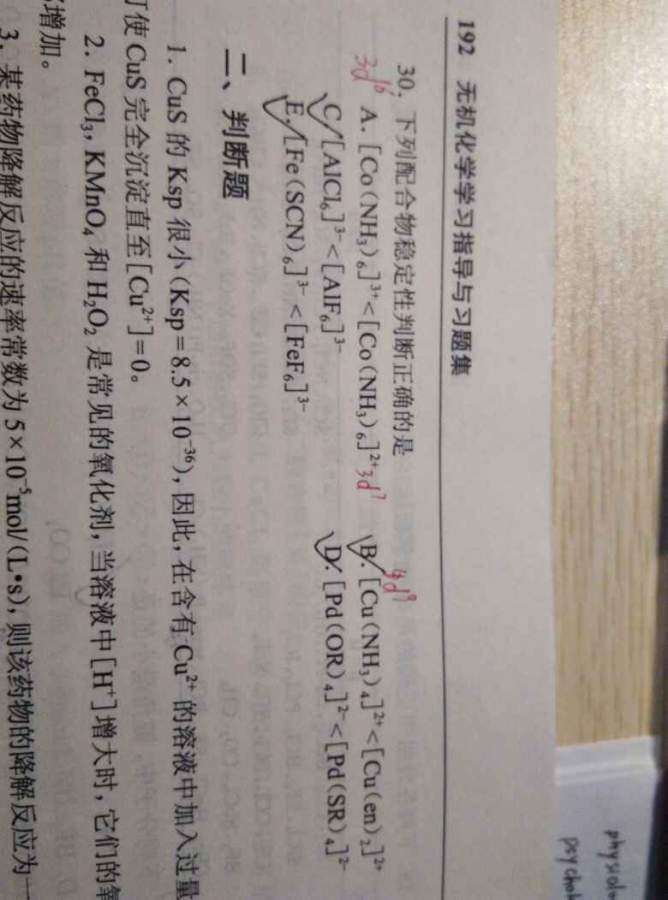 192 无机化学学习指导与习题集
30. 下列配合物稳定性判断正确的是
3d⁶ A. [Co(NH₃)₆]³⁺<[Co(NH₃)₆]²⁺ 3d⁷ B. [Cu(NH₃)₄]²⁺<[Cu(en)₂]²⁺
C. [AlCl₆]³⁻<[AlF₆]³⁻ D. [Pd(OR)₄]²⁻<[Pd(SR)₄]²⁻
E. [Fe(SCN)₆]³⁻<[FeF₆]³⁻
二、判断题
1. CuS 的 Ksp 很小(Ksp=8.5×10⁻³⁶), 因此, 在含有 Cu²⁺ 的溶液中加入过量
可使 CuS 完全沉淀直至[Cu²⁺]=0。
2. FeCl₃, KMnO₄ 和 H₂O₂ 是常见的氧化剂, 当溶液中[H⁺]增大时, 它们的氧
增加。
3. 某药物降解反应的速率常数为 5×10⁻⁵mol/(L·s), 则该药物的降解反应为一